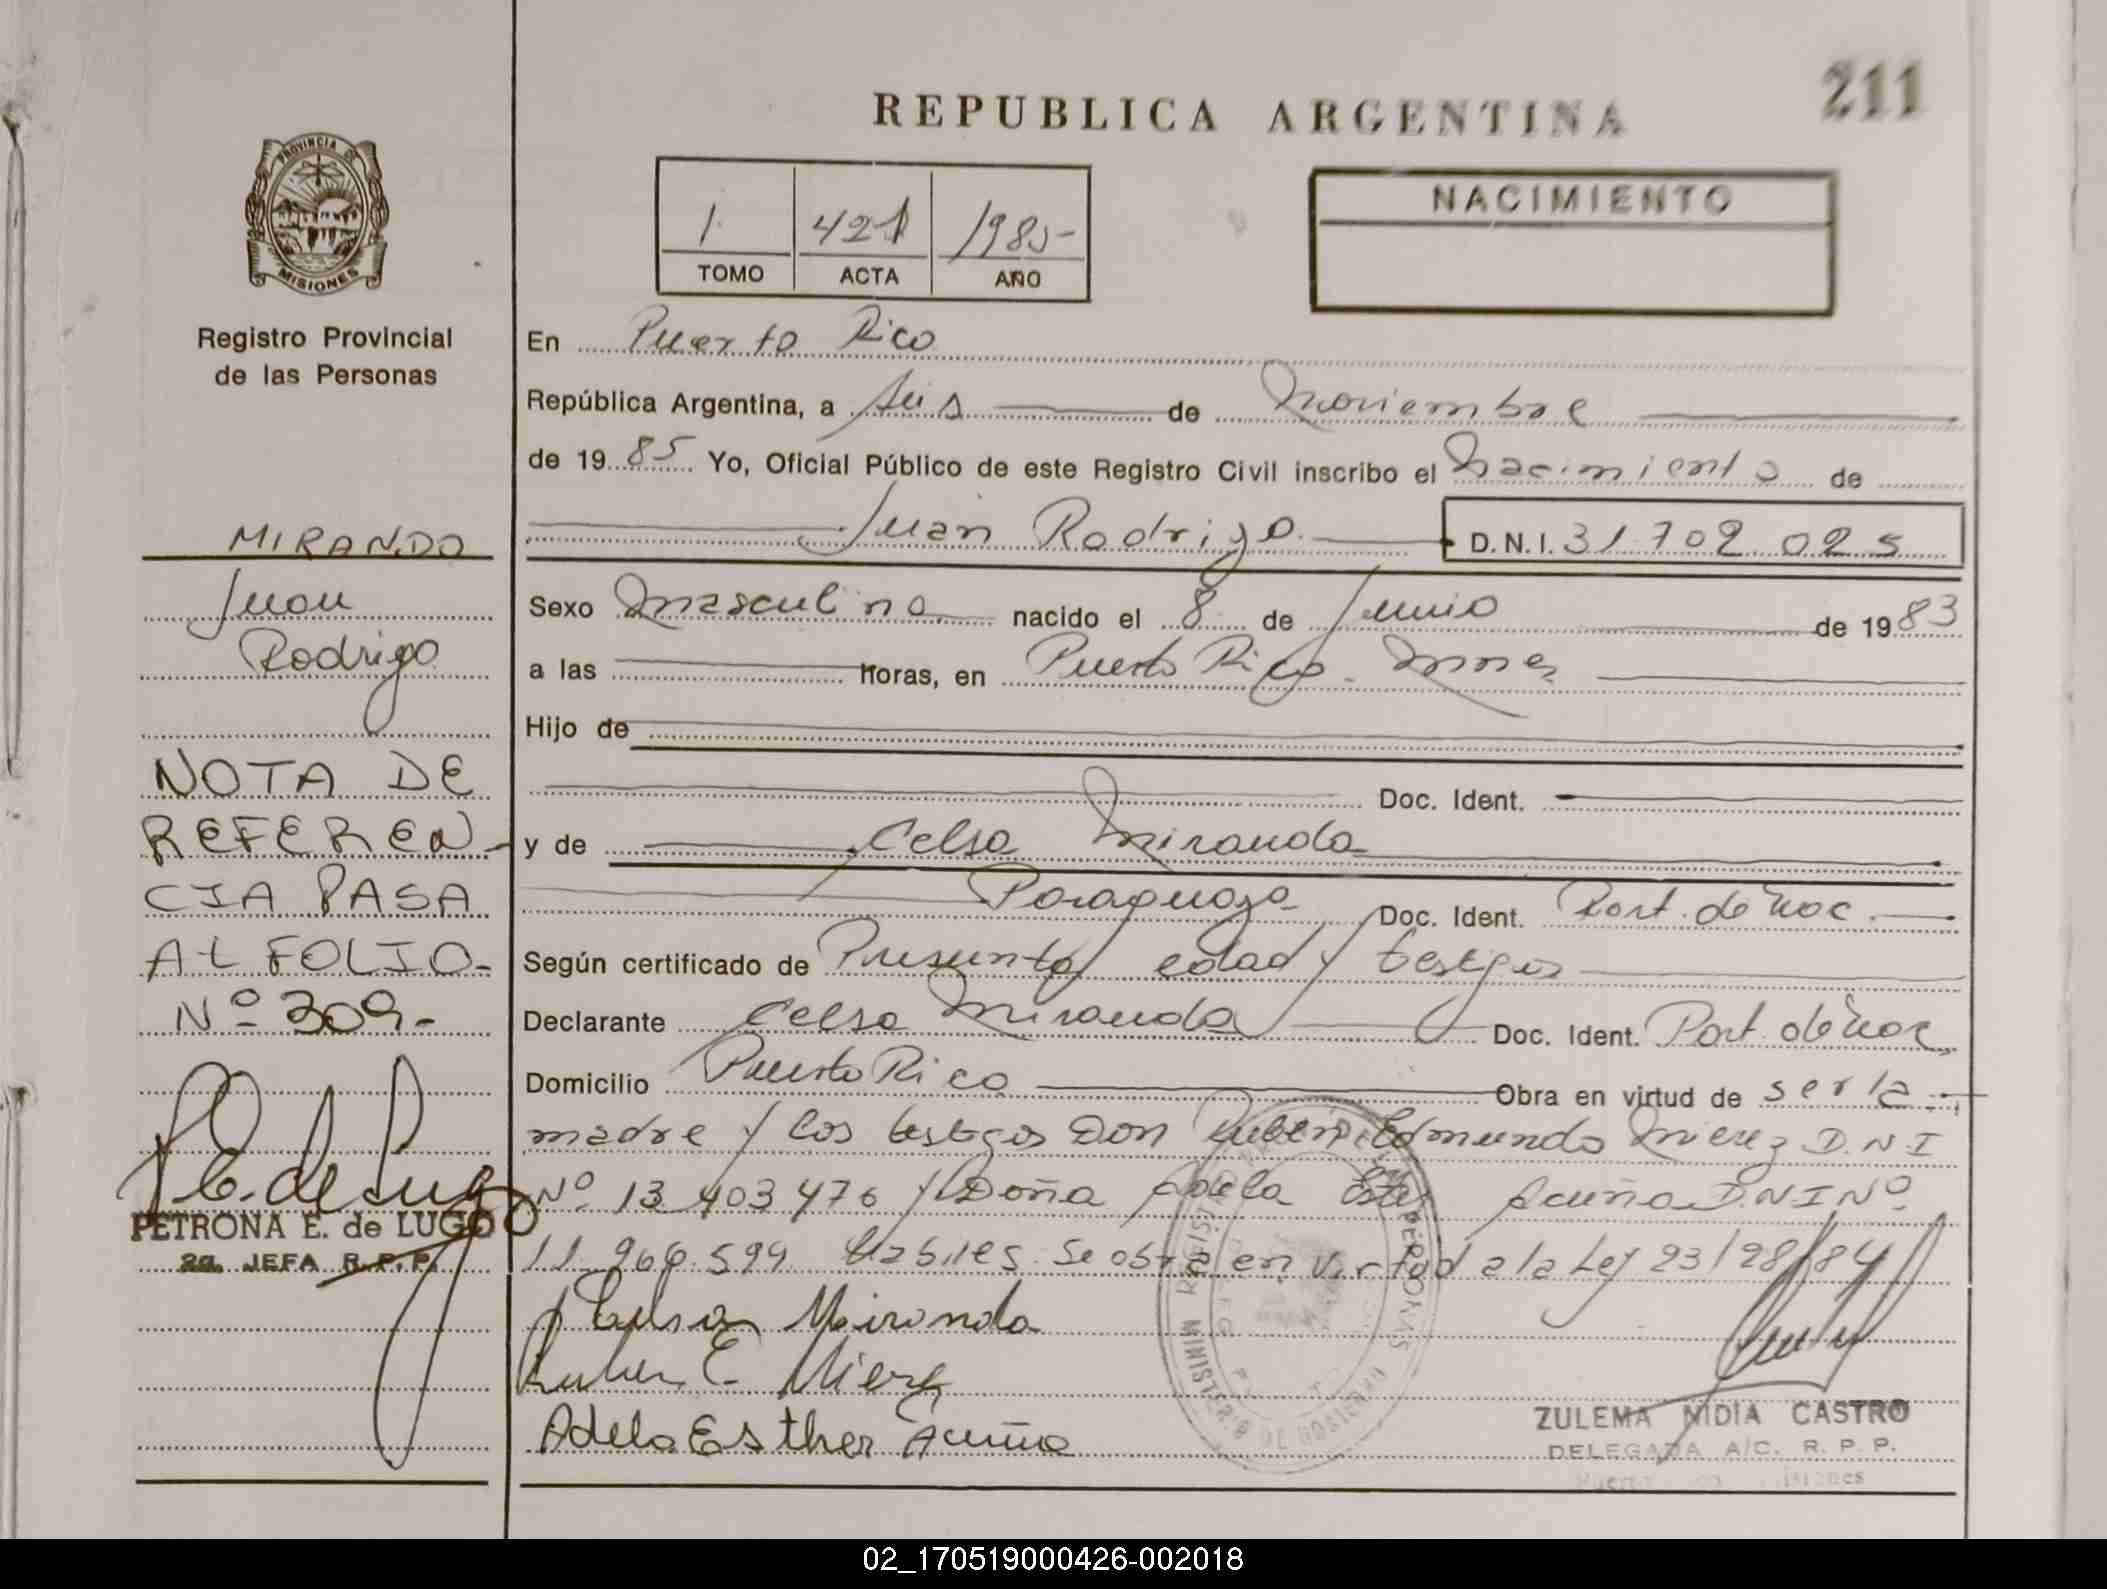 REPUBLICA ARGENTINA
211
PROVINCIA DE
MISIONES
Registro Provincial
de las Personas
1 421 1985-
TOMO ACTA AÑO
NACIMIENTO
En Puerto Rico
República Argentina, a seis de Noviembre
de 1985 Yo, Oficial Público de este Registro Civil inscribo el Nacimiento de
Juan Rodrigo D.N.I. 31 702 025
Sexo Masculino nacido el 8 de Junio de 1983
a las Horas, en Puerto Rico. Mnes
Hijo de
Doc. Ident.
y de Celsa Miranda
Paraguaya Doc. Ident. Port. de Noc.
Según certificado de Presunta edad y testigos
Declarante Celsa Miranda Doc. Ident. Port. de Noc
Domicilio Puerto Rico Obra en virtud de ser la
madre y los testigos Don Ruben Edmundo Mierez D.N I
Nº 13 403 476 y Doña Adela Ester Acuña D.N I Nº
11.966.599 habiles. Se obra en virtud a la Ley 23/28/84
Celsa Miranda
Ruben E. Mierez
Adela Esther Acuña
ZULEMA NIDIA CASTRO
DELEGADA A/C. R. P. P.
MIRANDO
Juan
Rodrigo
NOTA DE
REFEREN-
CIA PASA
AL FOLIO-
Nº 309-
P.E. de Lugo
PETRONA E. de LUGO
2a. JEFA R.P.P.
MINISTERIO DE GOBIERNO
02_170519000426-002018